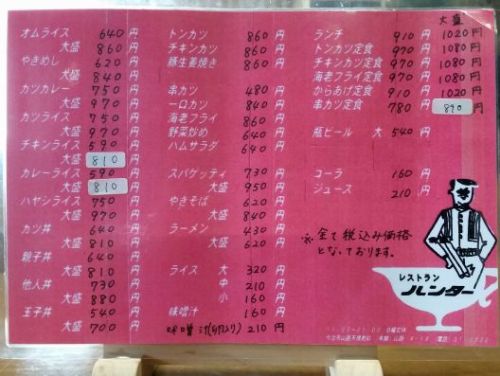 オムライス 640円
大盛 860円
やきめし 620円
大盛 840円
カツカレー 750円
大盛 970円
カツライス 750円
大盛 970円
チキンライス 590円
大盛 810円
カレーライス 590円
大盛 810円
ハヤシライス 750円
大盛 970円
カツ丼 640円
大盛 810円
親子丼 640円
大盛 810円
他人丼 730円
大盛 880円
玉子丼 540円
大盛 700円
トンカツ 860円
チキンカツ 860円
豚生姜焼き 860円
串カツ 480円
一口カツ 840円
海老フライ 860円
野菜炒め 640円
ハムサラダ 640円
スパゲッティ 730円
大盛 950円
やきそば 620円
大盛 840円
ラーメン 430円
大盛 620円
ライス 大 320円
中 210円
小 160円
味噌汁 160円
味噌汁(卵入り) 210円
大盛
ランチ 910円 1020円
トンカツ定食 970円 1080円
チキンカツ定食 970円 1080円
海老フライ定食 970円 1080円
からあげ定食 910円 1020円
串カツ定食 780円 890円
瓶ビール 大 540円
コーラ 160円
ジュース 210円
※全て税込み価格
となっております。
レストラン
ハンター